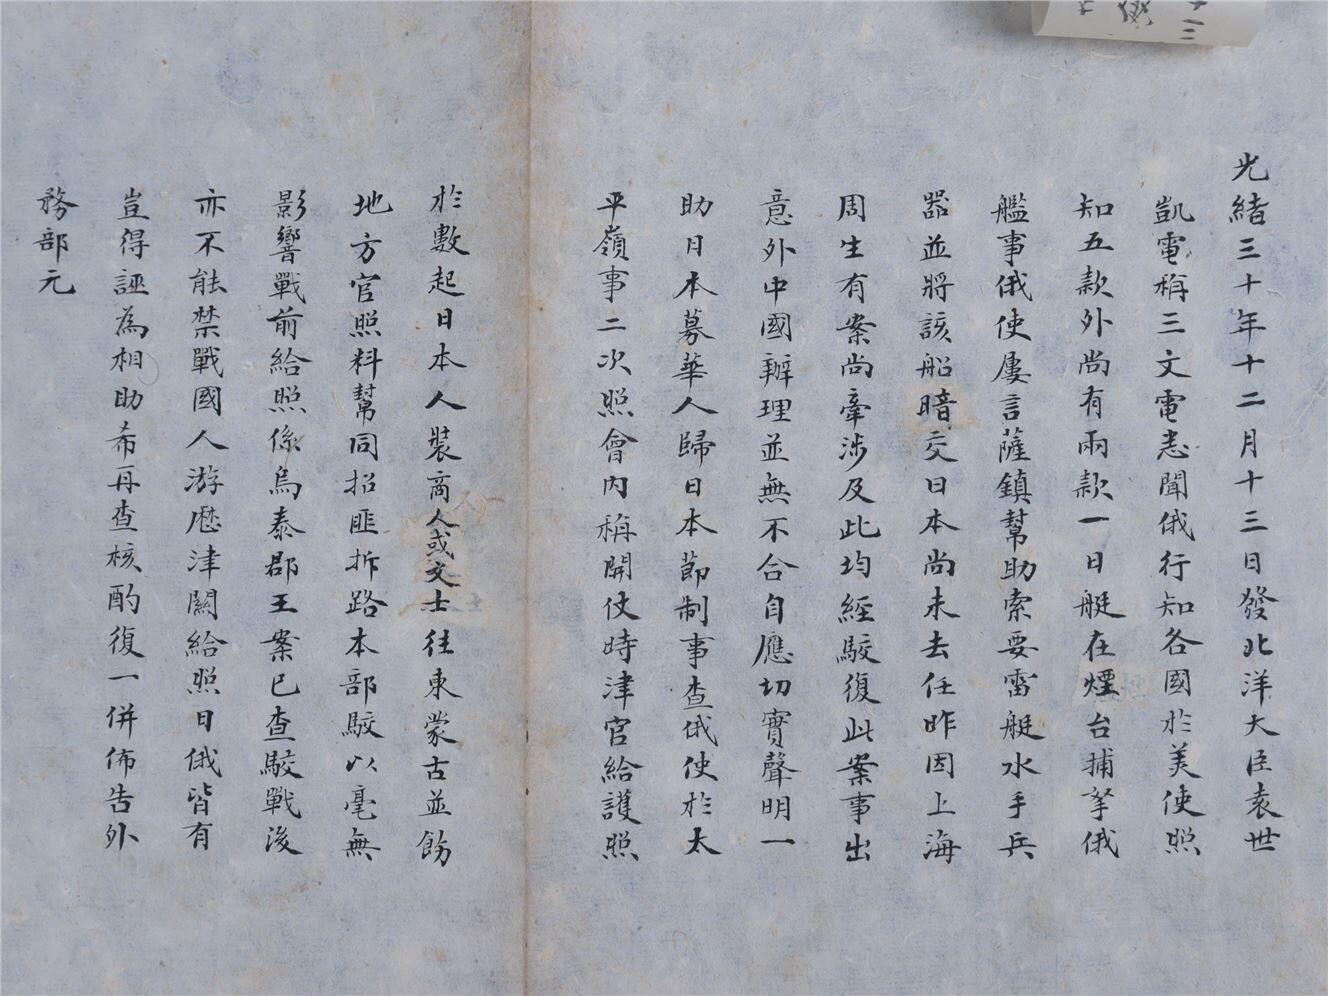 光緒三十年十二月十三日發北洋大臣袁世
凱電稱三文電悉聞俄行知各國於美使照
知五款外尚有兩款一日艇在煙台捕拏俄
艦事俄使屢言薩鎮幫助索要雷艇水手兵
器並將該船暗交日本尚未去任昨因上海
周生有案尚牽涉及此均經駮復此案事出
意外中國辦理並無不合自應切實聲明一
助日本募華人歸日本節制事查俄使於太
平嶺事二次照會內稱開仗時津官給護照
於數起日本人裝商人或文士往東蒙古並飭
地方官照料幫同招匪拆路本部駮以毫無
影響戰前給照係烏泰郡王案已查駮戰後
亦不能禁戰國人游歷津關給照日俄皆有
豈得誣為相助希再查核酌復一併佈告外
務部元